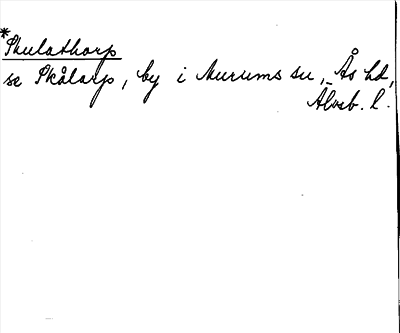 *Skulathorp
se Skålarp, by i Murums sn, Ås hd,
Älvsb. l.